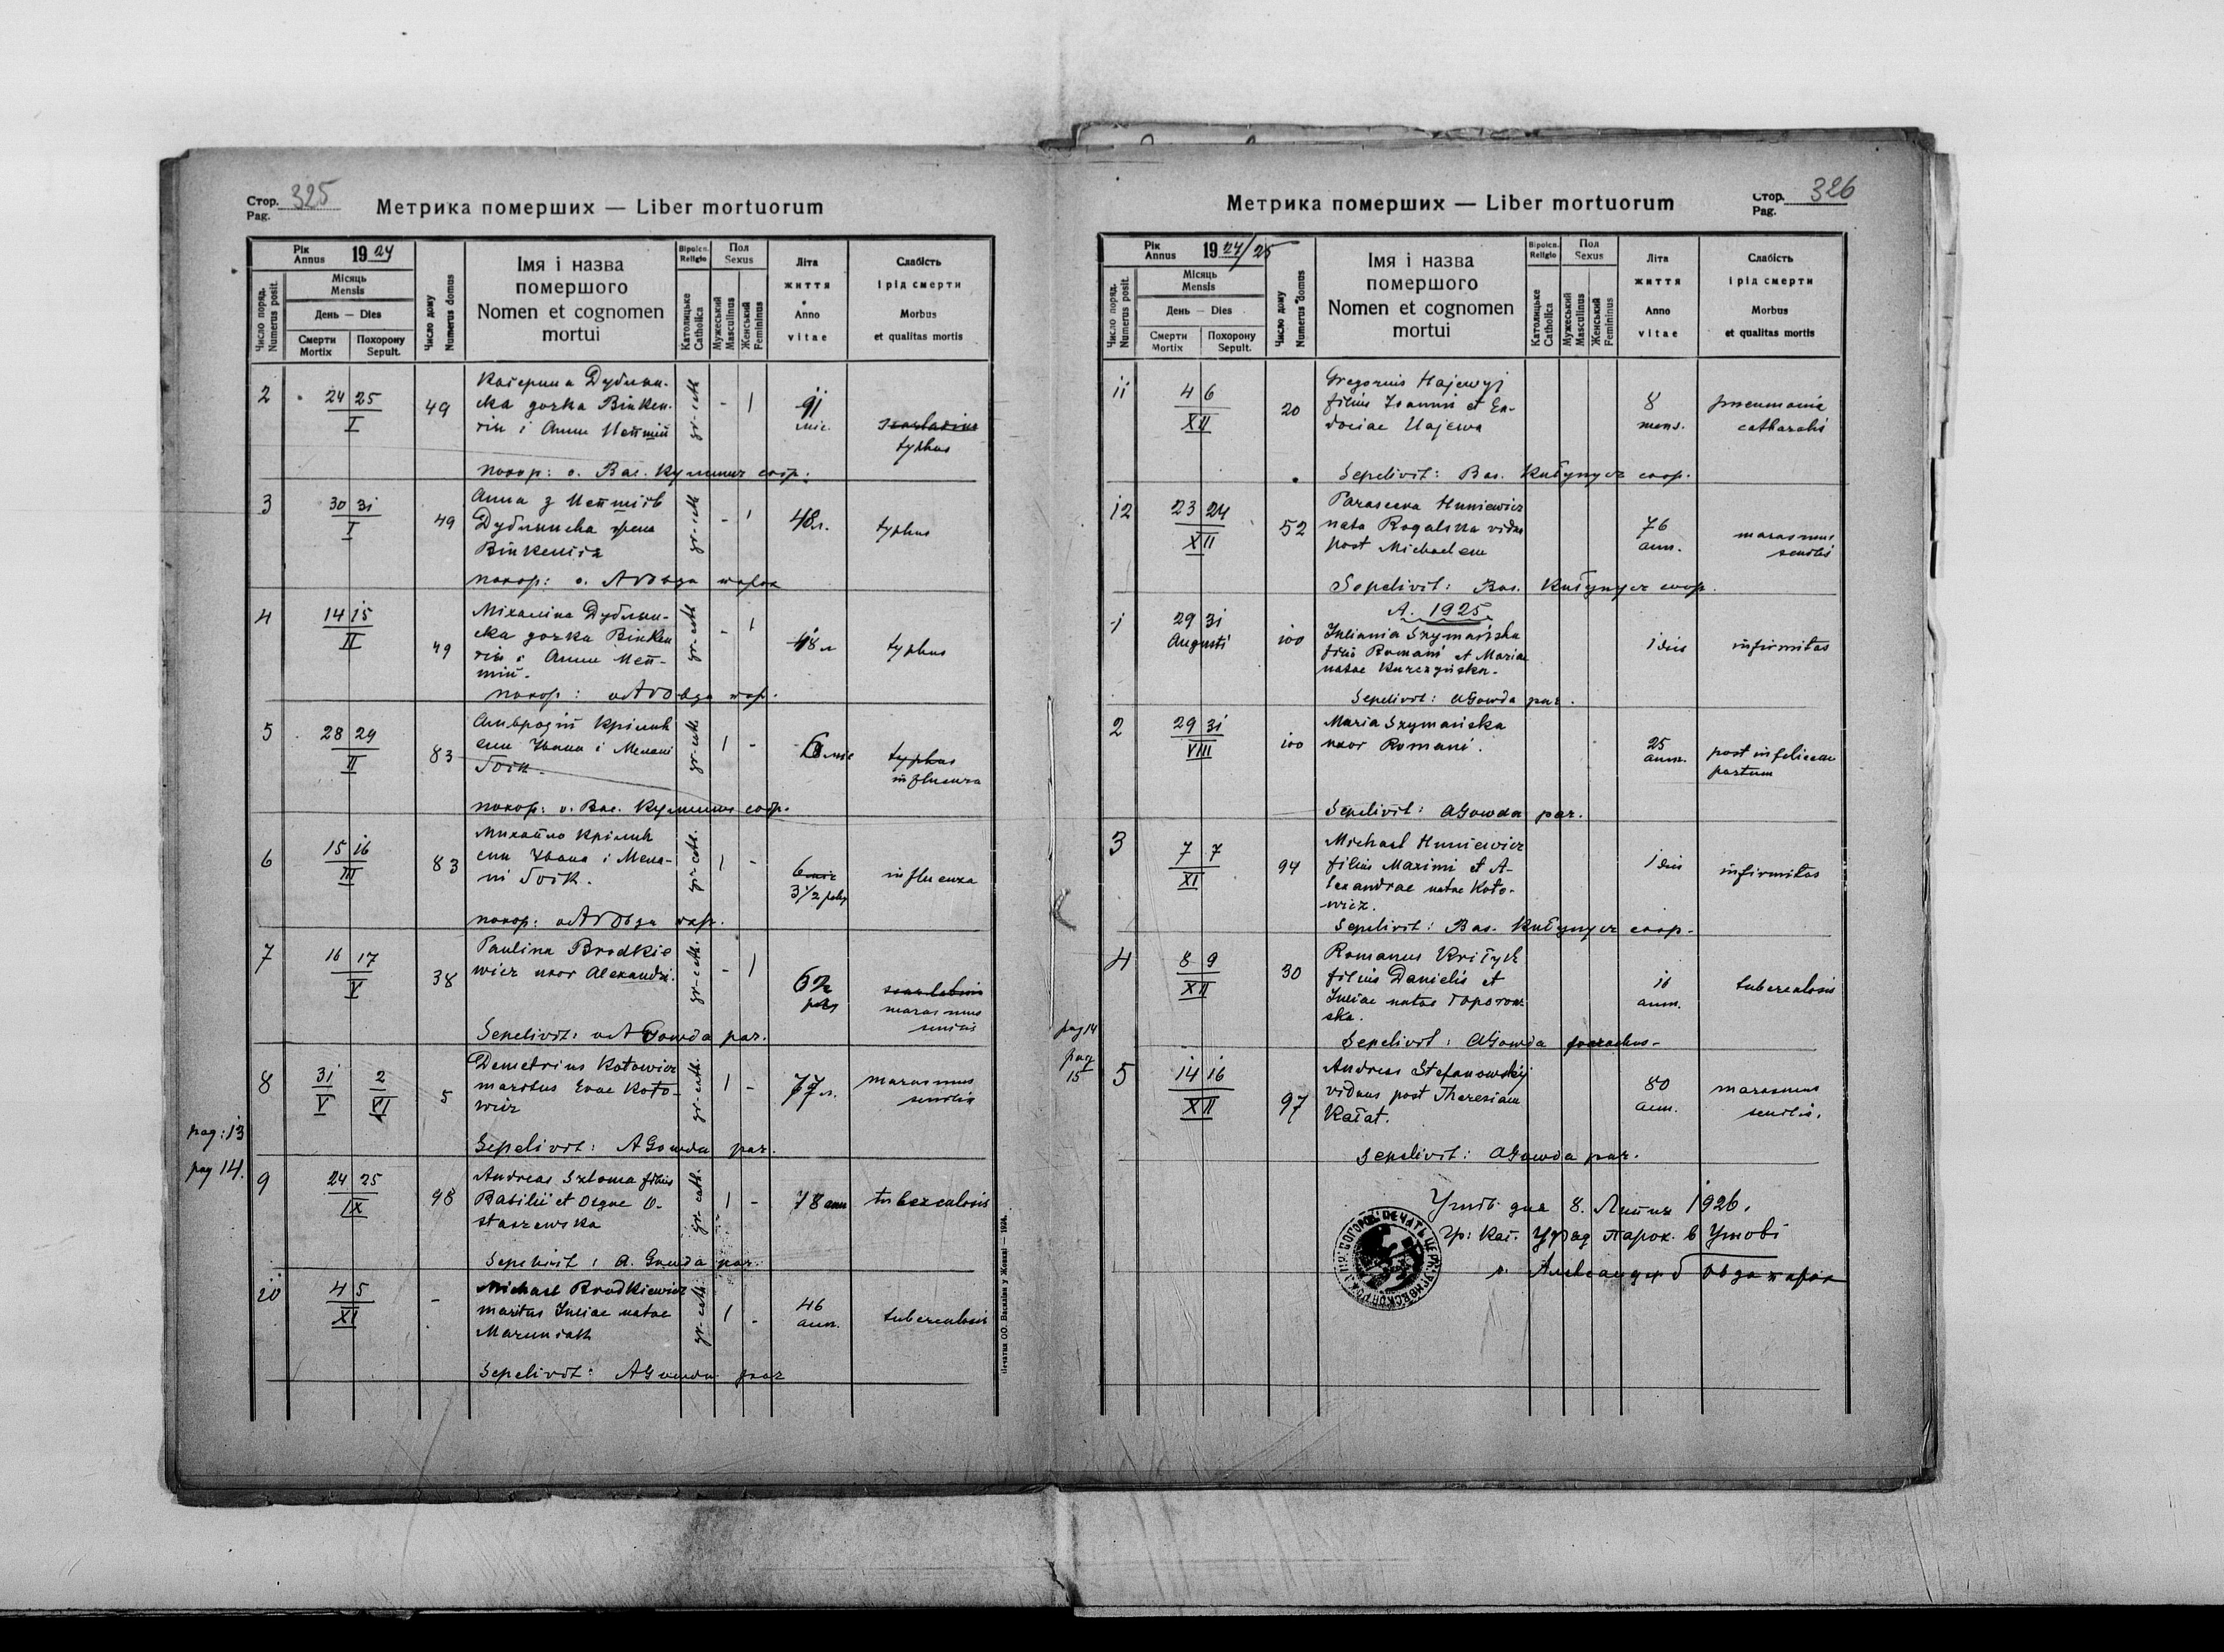 Стор. 325
Pag.
Метрика померших — Liber mortuorum
Рік
Annus 1924
Число поряд.
Numerus posit.
Місяць
Mensis
День — Dies
Смерти
Mortix
Похорону
Sepult.
Число дому
Numerus domus
Імя і назва
помершого
Nomen et cognomen
mortui
Віроісп.
Religio
Католицьке
Catholica
Пол
Sexus
Мужеський
Masculinus
Женський
Femininus
Літа
життя
Anno
vitae
Слабість
і рід смерти
Morbus
et qualitas mortis
2 24 25 I 49 gr-cath - 1
Катерина Дублян-
ска дочка Вінкен-
тія і Анни
typhus
похор: о. Вас. сотр.
3 30 31 I 49 gr-cath - 1 48 л. typhus
Анна з
Дублянска жена
Вінкентія
похор: о. А Говда парох
4 14 15 II 49 gr-cath - 1 48 л typhus
Міхаліна Дублян-
ска дочка Вінкен
тія і Анни
похор: о А Говда пар.
5 28 29 II 83 gr-cath. 1 - 6 міс typhus
influenza
син Івана і Мелані
похор: о. Вас. сотр.
6 15 16 III 83 gr-cath. 1 - 6 міс
3 1/2 influenza
Михайло
син Івана і Мела-
ні
похор: о А Говда пар.
7 16 17 V 38 gr-cath. - 1 62
Paulina Brodkie
wicz uxor Alexandri.
marasmus
senilis
Sepelivit: o A Gowda par.
8 31 V 2 VI 5 gr-cath. 1 - 77 л. marasmus
senilis
Demetrius Kotowicz
maritus Evae Koto-
wicz
Sepelivit: A Gowda par.
pag: 13
pag 14.
9 24 25 IX 98 gr-cath. 1 - 78 ann tuberculosis
Andreas Szloma filius
Basilii et O-
staszewska
Sepelivit: A. Gowda par.
10 4 5 XI - gr-cath. 1 - 46
ann. tuberculosis
Michael Brodkiewicz
maritus Juliae natae
Sepelivit: A Gowda par
Печатня ОО. Василіян у Жовкві — 1924.
Метрика померших — Liber mortuorum
Стор. 326
Pag.
Рік
Annus 1924/25
Число поряд.
Numerus posit.
Місяць
Mensis
День — Dies
Смерти
Mortix
Похорону
Sepult.
Число дому
Numerus domus
Імя і назва
помершого
Nomen et cognomen
mortui
Віроісп.
Religio
Католицьке
Catholica
Пол
Sexus
Мужеський
Masculinus
Женський
Femininus
Літа
життя
Anno
vitae
Слабість
і рід смерти
Morbus
et qualitas mortis
11 4 6 XII 20 8
mens. pneumonia
catharalis
Gregorius Hajewyj
filius Joannis et Eu-
dociae
Sepelivit: Bas. coop.
12 23 24 XII 52 76
ann. marasmus
senilis
Parasceva Huniewicz
nata Rogalska vidua
post Michaelem
Sepelivit: Bas. coop.
A. 1925
1 29 31 Augusti 100 1 dies infirmitas
Juliania Szymańska
filia Romani et Mariae
natae Kurczyńska.
Sepelivit: A Gowda par.
2 29 31 VIII 100 25
ann. post infelicem
partum
Maria Szymańska
uxor Romani.
Sepelivit: A Gowda par.
3 7 7 XI 94 1 dies infirmitas
Michael Huniewicz
filius Maximi et A-
lexandrae natae Koto-
wicz.
Sepelivit: Bas. coop.
4 8 9 XII 30 16
ann. tuberculosis
Romanus
filius Danielis et
Juliae natae Toporow-
ska.
Sepelivit: A Gowda parochus-
pag 14
pag
15
5 14 16 XII 97 80
ann. marasmus
senilis.
Andreas Stefanowskyj
viduus post Theresiam
Sepelivit: A Gowda par.
дня 8. Липня 1926.
гр: кат. Уряд парох. в
о. Александер Говда парох